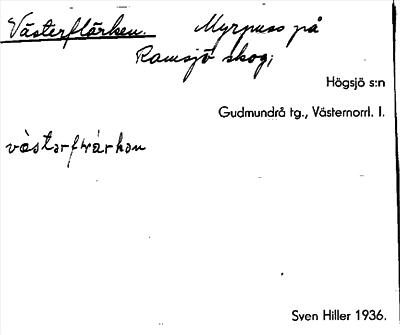 Västerflärken. Myrpuss på
Ramsjö skog,
Högsjö s:n
Gudmundrå tg., Västernorrl. l.
Sven Hiller 1936.